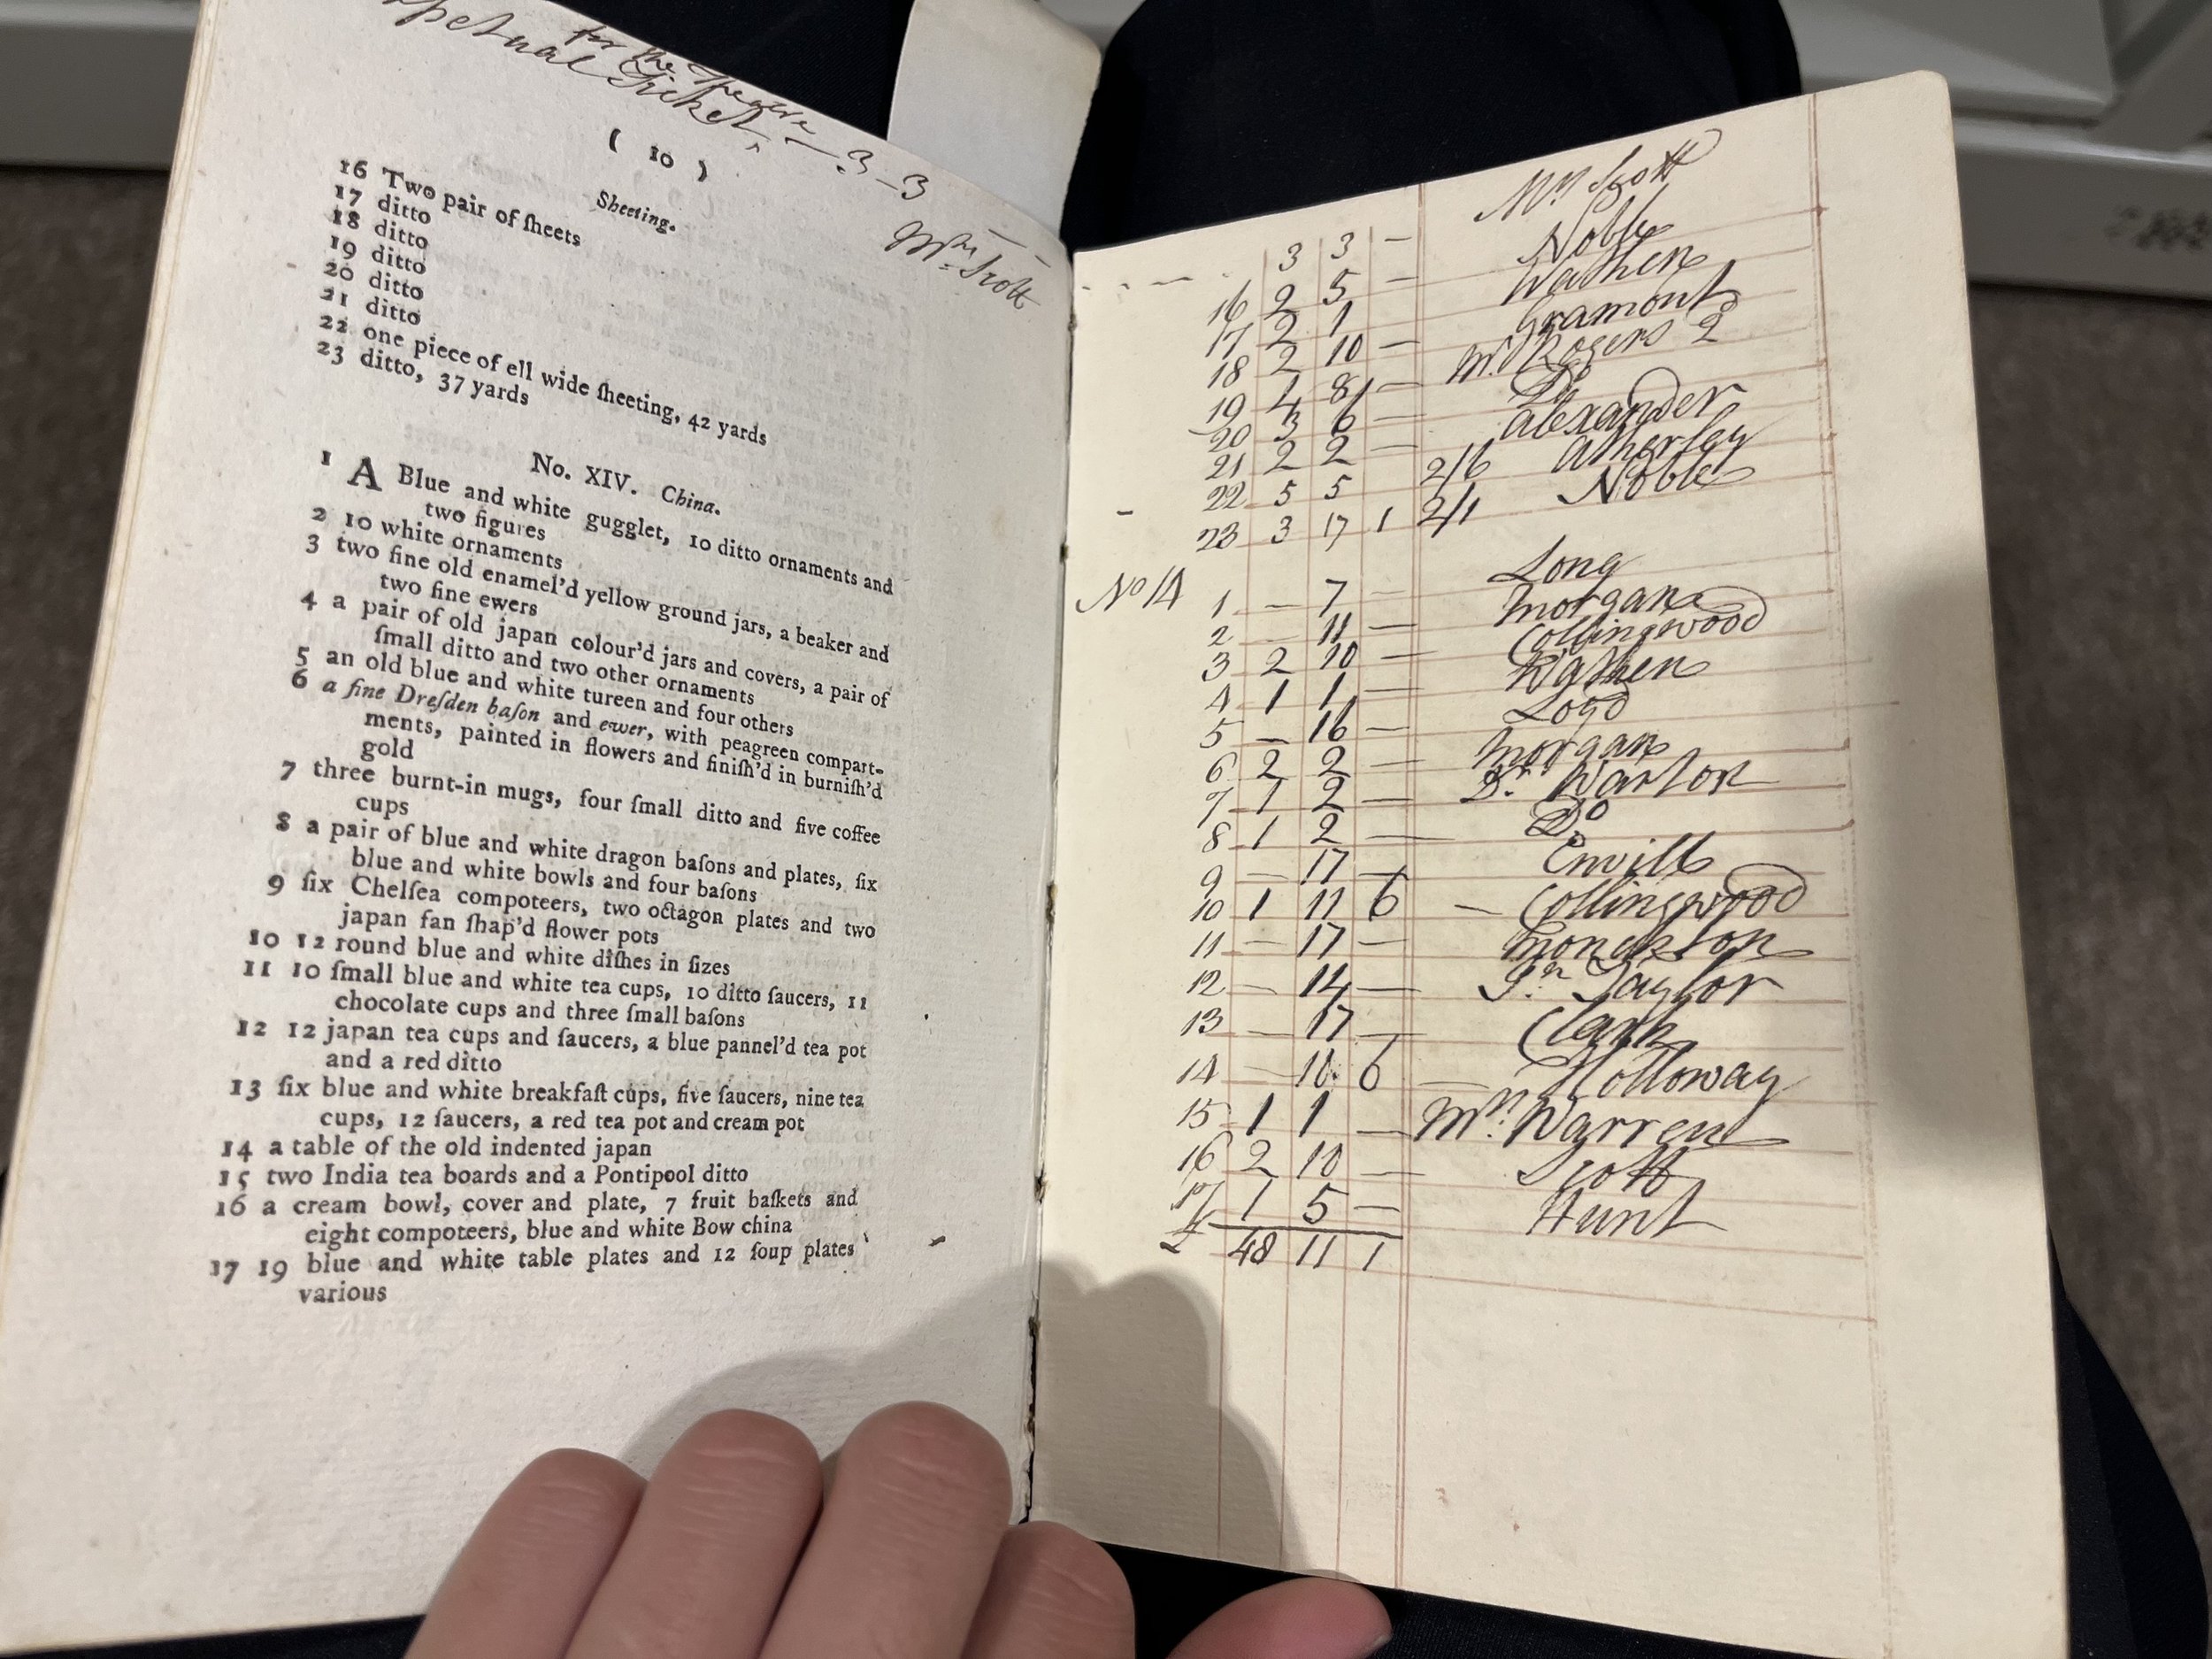 for the Theatre
rpetual Ticket, — 3 – 3 –
Mrs. Scott
( 10 )
Sheeting.
16 Two pair of ſheets
17 ditto
18 ditto
19 ditto
20 ditto
21 ditto
22 one piece of ell wide ſheeting, 42 yards
23 ditto, 37 yards
No. XIV. China.
1 A Blue and white gugglet, 10 ditto ornaments and
two figures
2 10 white ornaments
3 two fine old enamel'd yellow ground jars, a beaker and
two fine ewers
4 a pair of old japan colour'd jars and covers, a pair of
ſmall ditto and two other ornaments
5 an old blue and white tureen and four others
6 a fine Dreſden baſon and ewer, with peagreen compart-
ments, painted in flowers and finiſh'd in burniſh'd
gold
7 three burnt-in mugs, four ſmall ditto and five coffee
cups
8 a pair of blue and white dragon baſons and plates, ſix
blue and white bowls and four baſons
9 ſix Chelſea compoteers, two octagon plates and two
japan fan ſhap'd flower pots
10 12 round blue and white diſhes in ſizes
11 10 ſmall blue and white tea cups, 10 ditto ſaucers, 11
chocolate cups and three ſmall baſons
12 12 japan tea cups and ſaucers, a blue pannel'd tea pot
and a red ditto
13 ſix blue and white breakfaſt cups, five ſaucers, nine tea
cups, 12 ſaucers, a red tea pot and cream pot
14 a table of the old indented japan
15 two India tea boards and a Pontipool ditto
16 a cream bowl, cover and plate, 7 fruit baſkets and
eight compoteers, blue and white Bow china
17 19 blue and white table plates and 12 ſoup plates
various
3 3 — Mrs. Scott
16 2 5 — Noble
17 2 1 Wathen
18 2 10 — Gramont
19 4 8 — Mr. Rogers 2
20 3 6 — Do
21 2 2 — Alexander
22 5 5 2/6 Atherley
23 3 17 1 2/1 Noble
No 14
1 — 7 — Long
2 — 11 — Morgan
3 2 10 — Collingwood
4 1 1 — Wathen
5 — 16 — Loyd
6 2 2 — Morgan
7 1 2 — Dr. Warton
8 1 2 — Do
9 — 17 — Envill
10 1 11 6 — Collingwood
11 — 17 — Monckton
12 — 14 — Jn. Taylor
13 — 17 — Clark
14 — 10 6 — Holloway
15 1 1 — Mrs. Warren
16 2 10 — Scott
17 1 5 — Hunt
£ 48 11 1